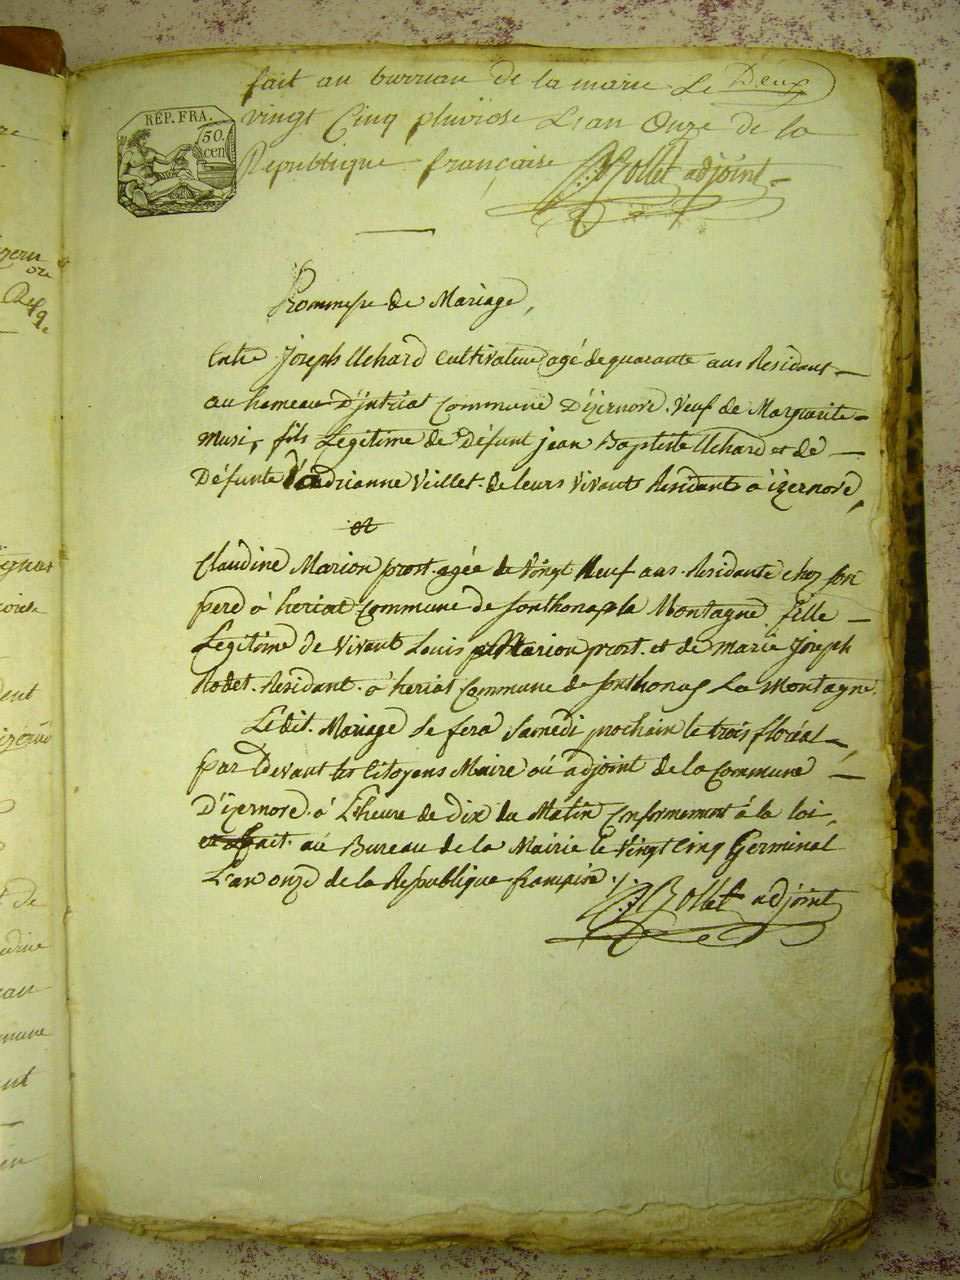 fait au burreau de la marie Le Deux
vingt Cinq pluviose L'an Onze de la
Republique française Bollet adjoint
REP. FRA.
50.
cen
Prommesse de Mariage,
Entre Joseph Uchard Cultivateur agé de quarante ans Residant
au hameau D'jntriat Commune D'izernore. Veuf de Marguerite
Musi, fils Legitime de Défunt jean Baptiste Uchard et de
Défunte adrianne Veillet. de leurs Vivants Residants a izernore,
et
Claudine Marion prost. agée de Vingt Neuf ans. Residante chez son
pere à heriat Commune de Sonthonax la Montagne. fille
Legitime de Vivant Louis Marion prost. et de marie Joseph
Rodet. Residant. à heriat Commune de Sonthonax La Montagne.
Ledit. Mariage Se fera Samedi prochain le trois floréal
par devant les Citoyens Maire où adjoint de la Commune
D'izernore. à L'heure de Dix du Matin Conformement à la loi,
fait. au Bureau de la Mairie le Vingt Cinq Germinal
L'an onze de la Republique françoise ./.
Bollet adjoint